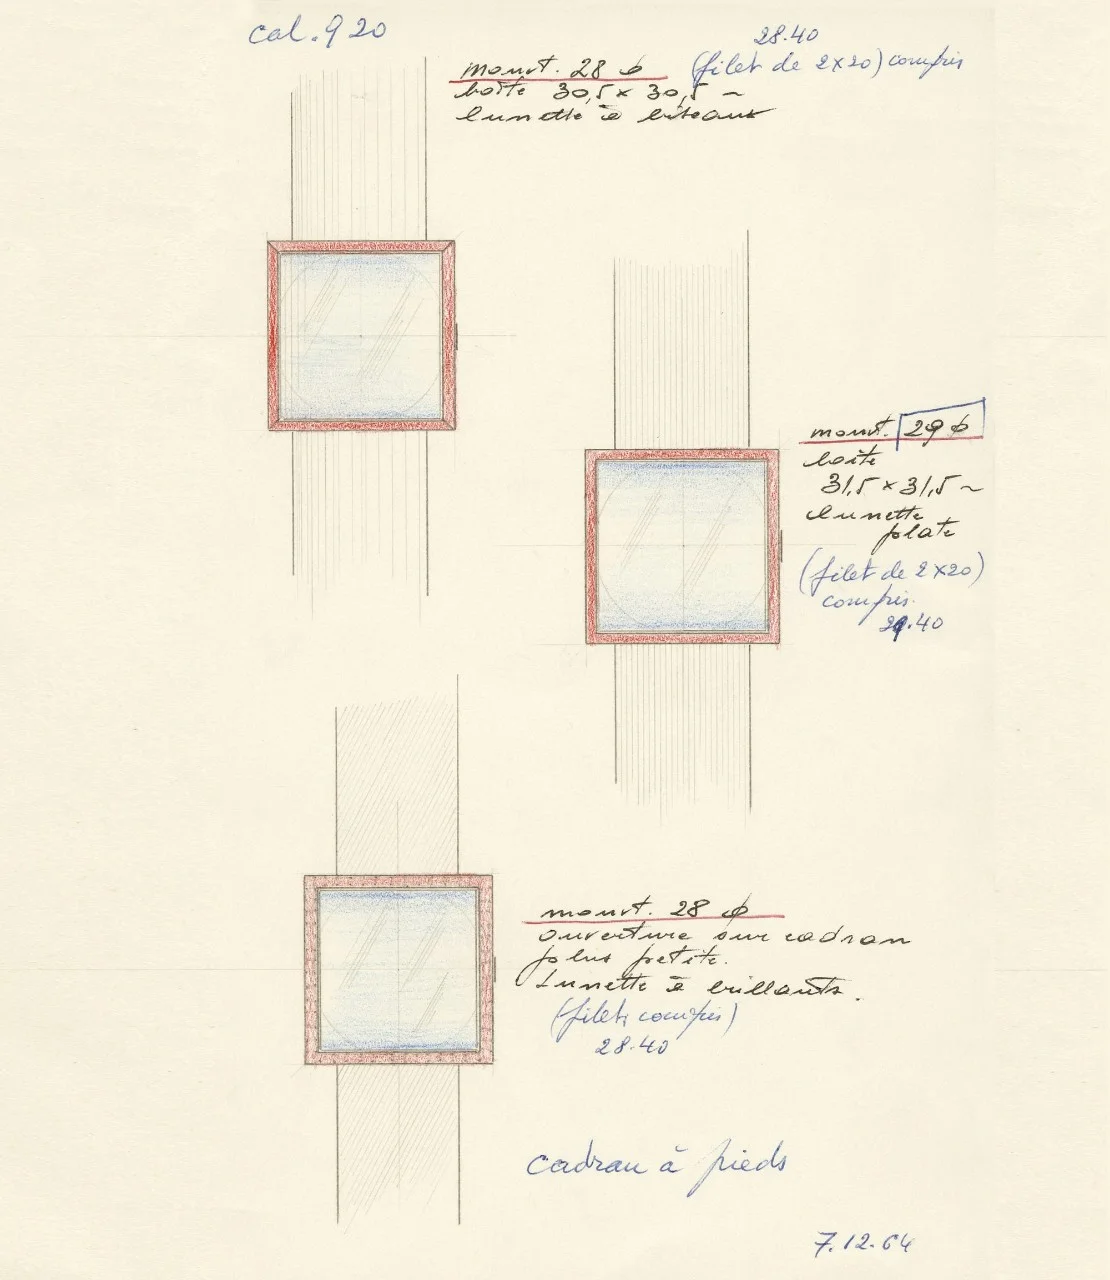 cal. 920
28.40
(filet de 2x20) compris
mouvt. 28 ⌀
boîte 30,5 x 30,5 ~
lunette à biseaux
mouvt. 29 ⌀
boîte
31,5 x 31,5 ~
lunette
plate
(filet de 2x20)
compris.
29.40
mouvt. 28 ⌀
ouverture sur cadran
plus petite.
Lunette à brillants.
(filet compris)
28.40
cadran à pieds
7.12.64